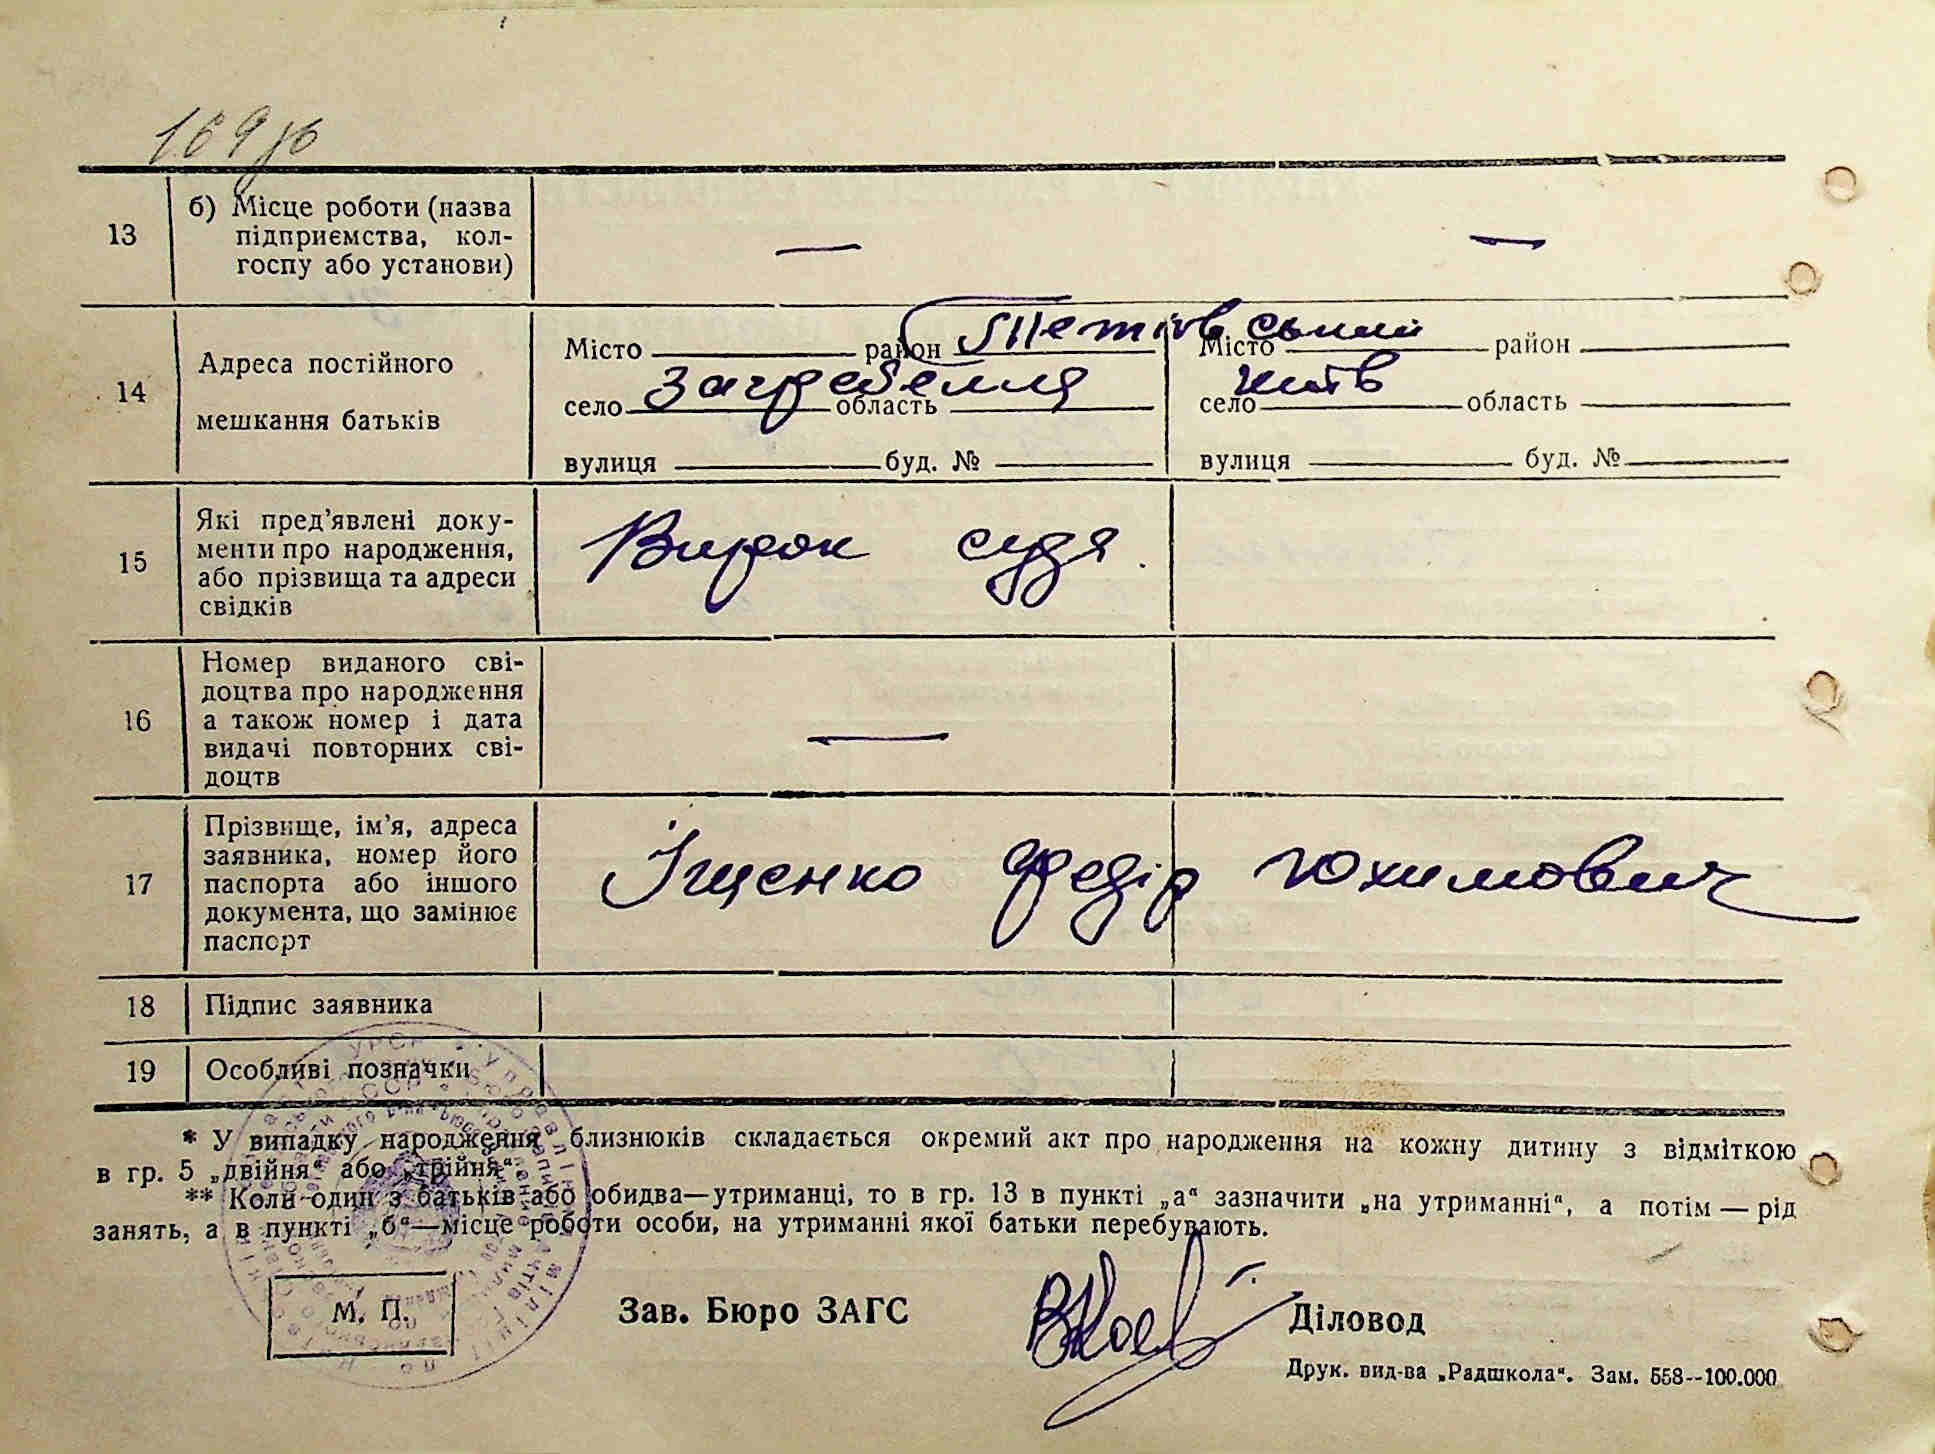 169
13 б) Місце роботи (назва
підприємства, кол-
госпу або установи) — —
14 Адреса постійного
мешкання батьків
Місто район Тетіївський Місто район
село Загребелля область село Київ область
вулиця буд. № вулиця буд. №
15 Які пред'явлені доку-
менти про народження,
або прізвища та адреси
свідків
Вирок суда
16 Номер виданого сві-
доцтва про народження
а також номер і дата
видачі повторних сві-
доцтв —
17 Прізвище, ім'я, адреса
заявника, номер його
паспорта або іншого
документа, що замінює
паспорт
Іщенко Федір Юхимович
18 Підпис заявника
19 Особливі позначки
* У випадку народження близнюків складається окремий акт про народження на кожну дитину з відміткою
в гр. 5 „двійня“ або „трійня“.
** Коли один з батьків або обидва—утриманці, то в гр. 13 в пункті „а“ зазначити „на утриманні“, а потім — рід
занять, а в пункті „б“—місце роботи особи, на утриманні якої батьки перебувають.
М. П. Зав. Бюро ЗАГС Діловод
Друк. вид-ва „Радшкола“. Зам. 558--100.000